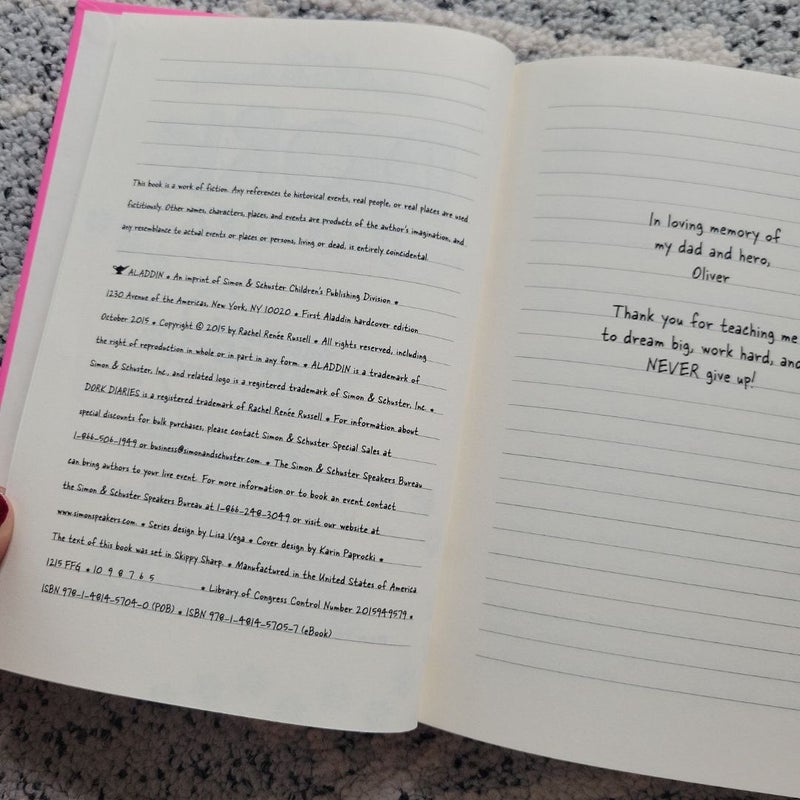 This book is a work of fiction. Any references to historical events, real people, or real places are used
fictitiously. Other names, characters, places, and events are products of the author's imagination, and
any resemblance to actual events or places or persons, living or dead, is entirely coincidental.
ALADDIN • An imprint of Simon & Schuster Children's Publishing Division •
1230 Avenue of the Americas, New York, NY 10020 • First Aladdin hardcover edition
October 2015 • Copyright © 2015 by Rachel Renée Russell • All rights reserved, including
the right of reproduction in whole or in part in any form. • ALADDIN is a trademark of
Simon & Schuster, Inc., and related logo is a registered trademark of Simon & Schuster, Inc. •
DORK DIARIES is a registered trademark of Rachel Renée Russell • For information about
special discounts for bulk purchases, please contact Simon & Schuster Special Sales at
1-866-506-1949 or business@simonandschuster.com. • The Simon & Schuster Speakers Bureau
can bring authors to your live event. For more information or to book an event contact
the Simon & Schuster Speakers Bureau at 1-866-248-3049 or visit our website at
www.simonspeakers.com. • Series design by Lisa Vega • Cover design by Karin Paprocki •
The text of this book was set in Skippy Sharp. • Manufactured in the United States of America
1215 FFG • 10 9 8 7 6 5 • Library of Congress Control Number 2015949579 •
ISBN 978-1-4814-5704-0 (POB) • ISBN 978-1-4814-5705-7 (eBook)
In loving memory of
my dad and hero,
Oliver
Thank you for teaching me
to dream big, work hard, and
NEVER give up!